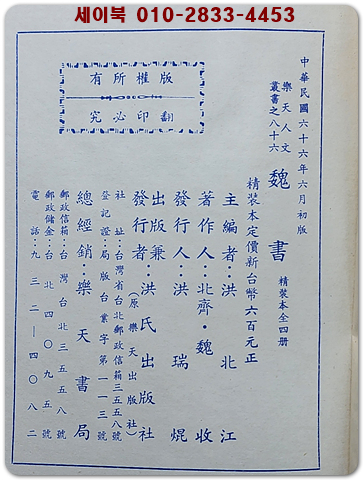 세이북 010-2833-4453
中華民國六十六年六月初版
樂天人文
叢書之八十六
魏書 精裝本全四册
精裝本定價新台幣六百元正
主編者：洪北江
著作人：北齊·魏收
發行人：洪瑞焜
出版兼
發行者：洪氏出版社
（原樂天出版社）
社址：台灣省台北郵政信箱三五五八號
登記證：局版台業字第一一一三號
總經銷：樂天書局
郵政信箱：台灣台北三五五八號
郵政儲金：台北四〇九五號
電話：九三二一四〇八二
版權所有
翻印必究